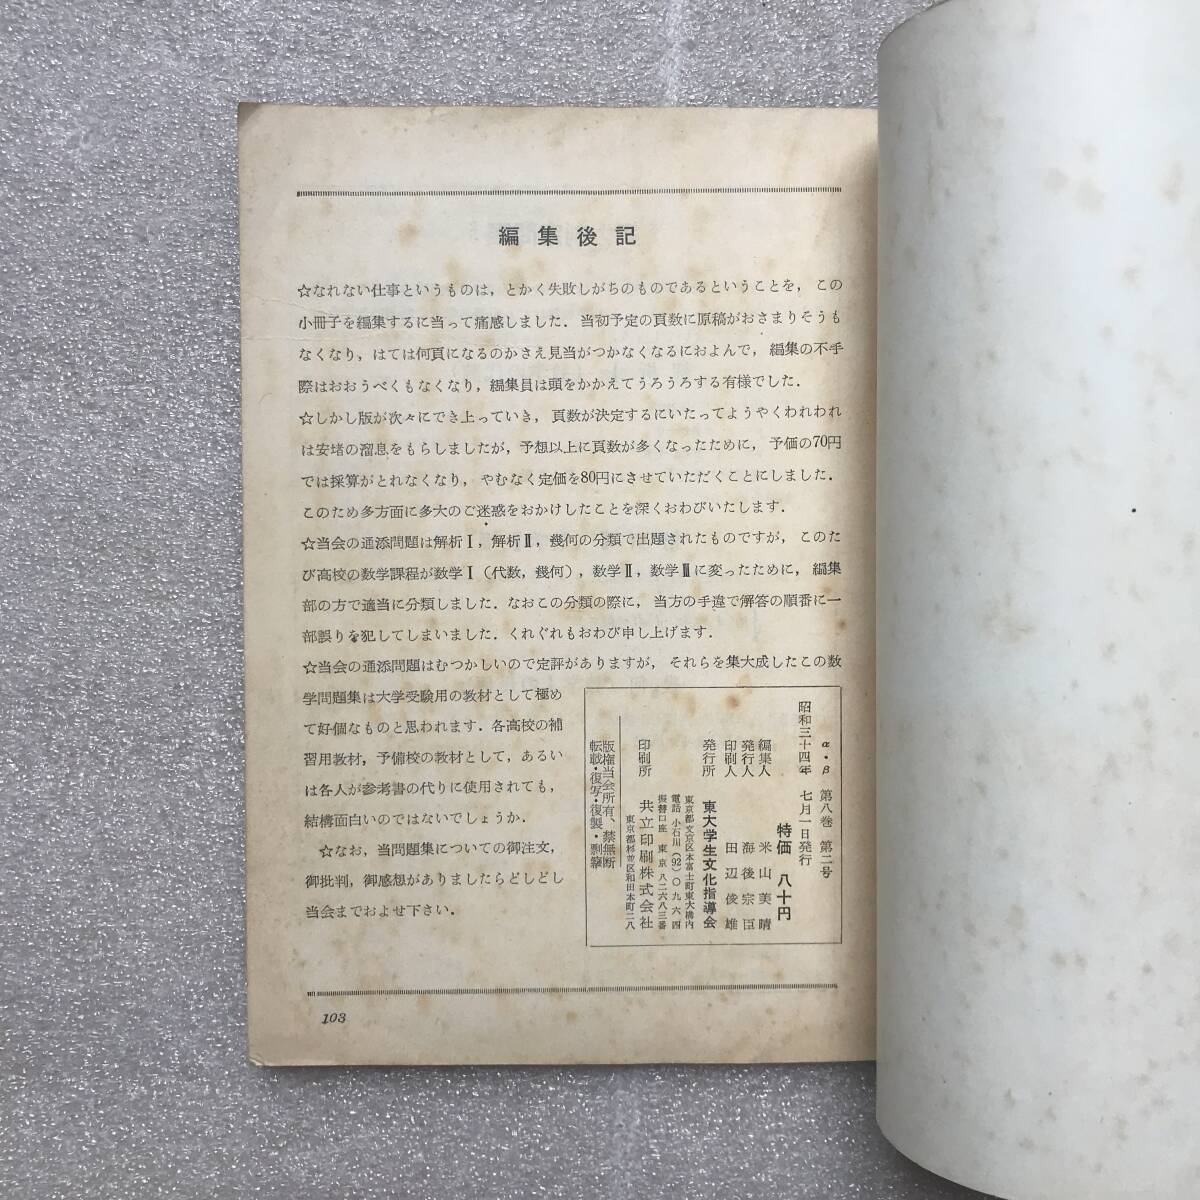 編集後記
☆なれない仕事というものは，とかく失敗しがちのものであるということを，この
小冊子を編集するに当って痛感しました．当初予定の頁数に原稿がおさまりそうも
なくなり，はては何頁になるのかさえ見当がつかなくなるにおよんで，編集の不手
際はおおうべくもなくなり，編集員は頭をかかえてうろうろする有様でした．
☆しかし版が次々にでき上っていき，頁数が決定するにいたってようやくわれわれ
は安堵の溜息をもらしましたが，予想以上に頁数が多くなったために，予価の70円
では採算がとれなくなり，やむなく定価を80円にさせていただくことにしました．
このため多方面に多大のご迷惑をおかけしたことを深くおわびいたします．
☆当会の通添問題は解析Ⅰ，解析Ⅱ，幾何の分類で出題されたものですが，このた
び高校の数学課程が数学Ⅰ（代数，幾何），数学Ⅱ，数学Ⅲに変ったために，編集
部の方で適当に分類しました．なおこの分類の際に，当方の手違で解答の順番に一
部誤りを犯してしまいました．くれぐれもおわび申し上げます．
☆当会の通添問題はむつかしいので定評がありますが，それらを集大成したこの数
学問題集は大学受験用の教材として極め
て好個なものと思われます．各高校の補
習用教材，予備校の教材として，あるい
は各人が参考書の代りに使用されても，
結構面白いのではないでしょうか．
☆なお，当問題集についての御注文，
御批判，御感想がありましたらどしどし
当会までおよせ下さい．
α・β 第八巻 第二号
昭和三十四年 七月一日発行
特価 八十円
編集人 米山美晴
発行人 海後宗臣
印刷人 田辺俊雄
発行所 東大学生文化指導会
東京都文京区本富士町東大構内
電話 小石川（92）〇九六四
振替口座 東京八二六八三番
印刷所 共立印刷株式会社
東京都杉並区和田本町二八
版権当会所有、禁無断
転載・復写・復製・剽竊
103